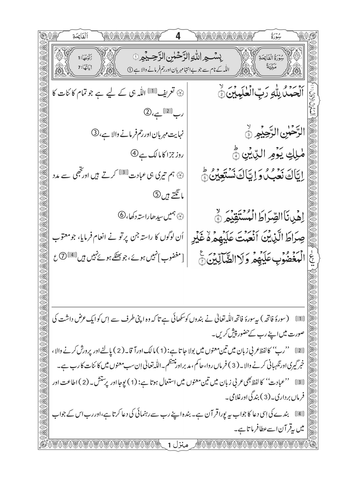 الفاتحة
4
سورۃ
بِسْمِ اللّٰهِ الرَّحْمٰنِ الرَّحِيْمِ
اللہ کے نام سے جو بے انتہا مہربان اور رحم فرمانے والا ہے
اَلْحَمْدُ لِلّٰهِ رَبِّ الْعٰلَمِيْنَ
تعریف اللہ ہی کے لیے ہے جو تمام کائنات کا
رب ہے،
الرَّحْمٰنِ الرَّحِيْمِ
نہایت مہربان اور رحم فرمانے والا ہے،
مٰلِكِ يَوْمِ الدِّيْنِ
روزِ جزا کا مالک ہے
اِيَّاكَ نَعْبُدُ وَاِيَّاكَ نَسْتَعِيْنُ
ہم تیری ہی عبادت کرتے ہیں اور تجھی سے مدد
مانگتے ہیں
اِهْدِنَا الصِّرَاطَ الْمُسْتَقِيْمَ
ہمیں سیدھا راستہ دکھا،
صِرَاطَ الَّذِيْنَ اَنْعَمْتَ عَلَيْهِمْ غَيْرِ
اُن لوگوں کا راستہ جن پر تو نے انعام فرمایا، جو معتوب
الْمَغْضُوْبِ عَلَيْهِمْ وَلَا الضَّآلِّيْنَ
[مغضوب] نہیں ہوئے، جو بھٹکے ہوئے نہیں ہیں
(سورۂ فاتحہ) یہ سورۂ فاتحہ اللہ تعالیٰ نے بندوں کو سکھائی ہے تاکہ وہ اپنی طرف سے اس کو ایک عرض داشت کی
صورت میں اپنے رب کے حضور پیش کریں۔
"رب" کا لفظ عربی زبان میں تین معنوں میں بولا جاتا ہے: (1) مالک اور آقا۔ (2) پالنے اور پرورش کرنے والا،
خبر گیری اور نگہبانی کرنے والا۔ (3) فرماں روا، حاکم، مدبر اور منتظم۔ اللہ تعالیٰ ان سب معنوں میں کائنات کا رب ہے۔
"عبادت" کا لفظ بھی عربی زبان میں تین معنوں میں استعمال ہوتا ہے: (1) پوجا اور پرستش۔ (2) اطاعت اور
فرماں برداری۔ (3) بندگی اور غلامی۔
بندے کی اِسی دعا کا جواب یہ پورا قرآن ہے۔ بندہ اپنے رب سے رہنمائی کی دعا کرتا ہے، اور رب اس کے جواب
میں یہ قرآن اسے عطا فرماتا ہے۔
منزل 1